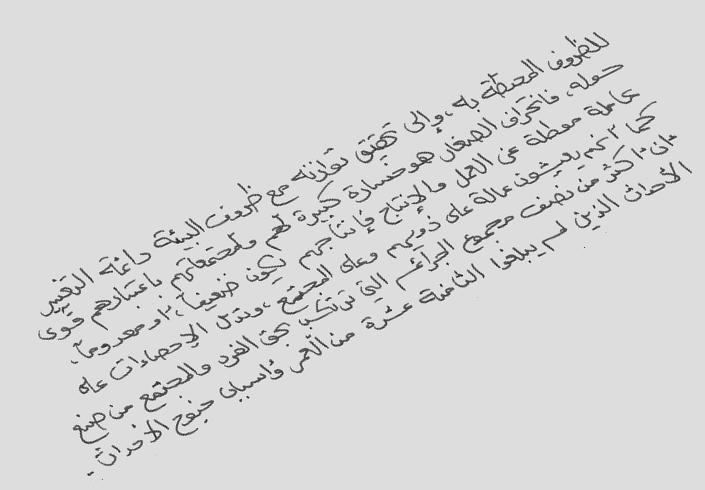 للظروف المحيطة به، وإلى تحقيق توازنه مع ظروف البيئة دائمة التغيير
حوله، فانحراف الصغار هو خسارة كبيرة لهم ولمجتمعاتهم باعتبارهم قوى
عاملة معطلة عن العمل والإنتاج فإنتاجهم يكون ضعيفاً، أو معدوماً،
كما أنهم يعيشون عالة على ذويهم وعلى المجتمع، وتدل الإحصاءات على
أن أكثر من نصف مجموع الجرائم التي ترتكب بحق الفرد والمجتمع من صنع
الأحداث الذين لم يبلغوا الثامنة عشرة من العمر وأسباب جنوح الأحداث.